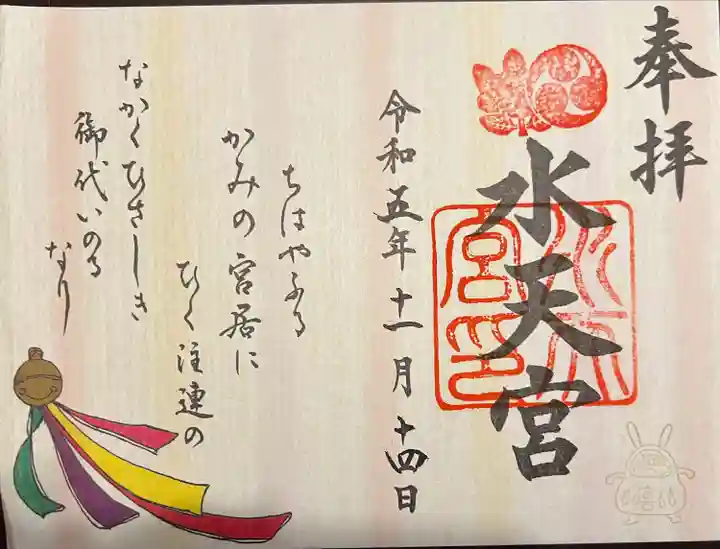 奉拝
水天宮
水天宮印
令和五年十一月十四日
ちはやふる
かみの宮居に
ひく注連の
なかくひさしき
御代いのる
なり